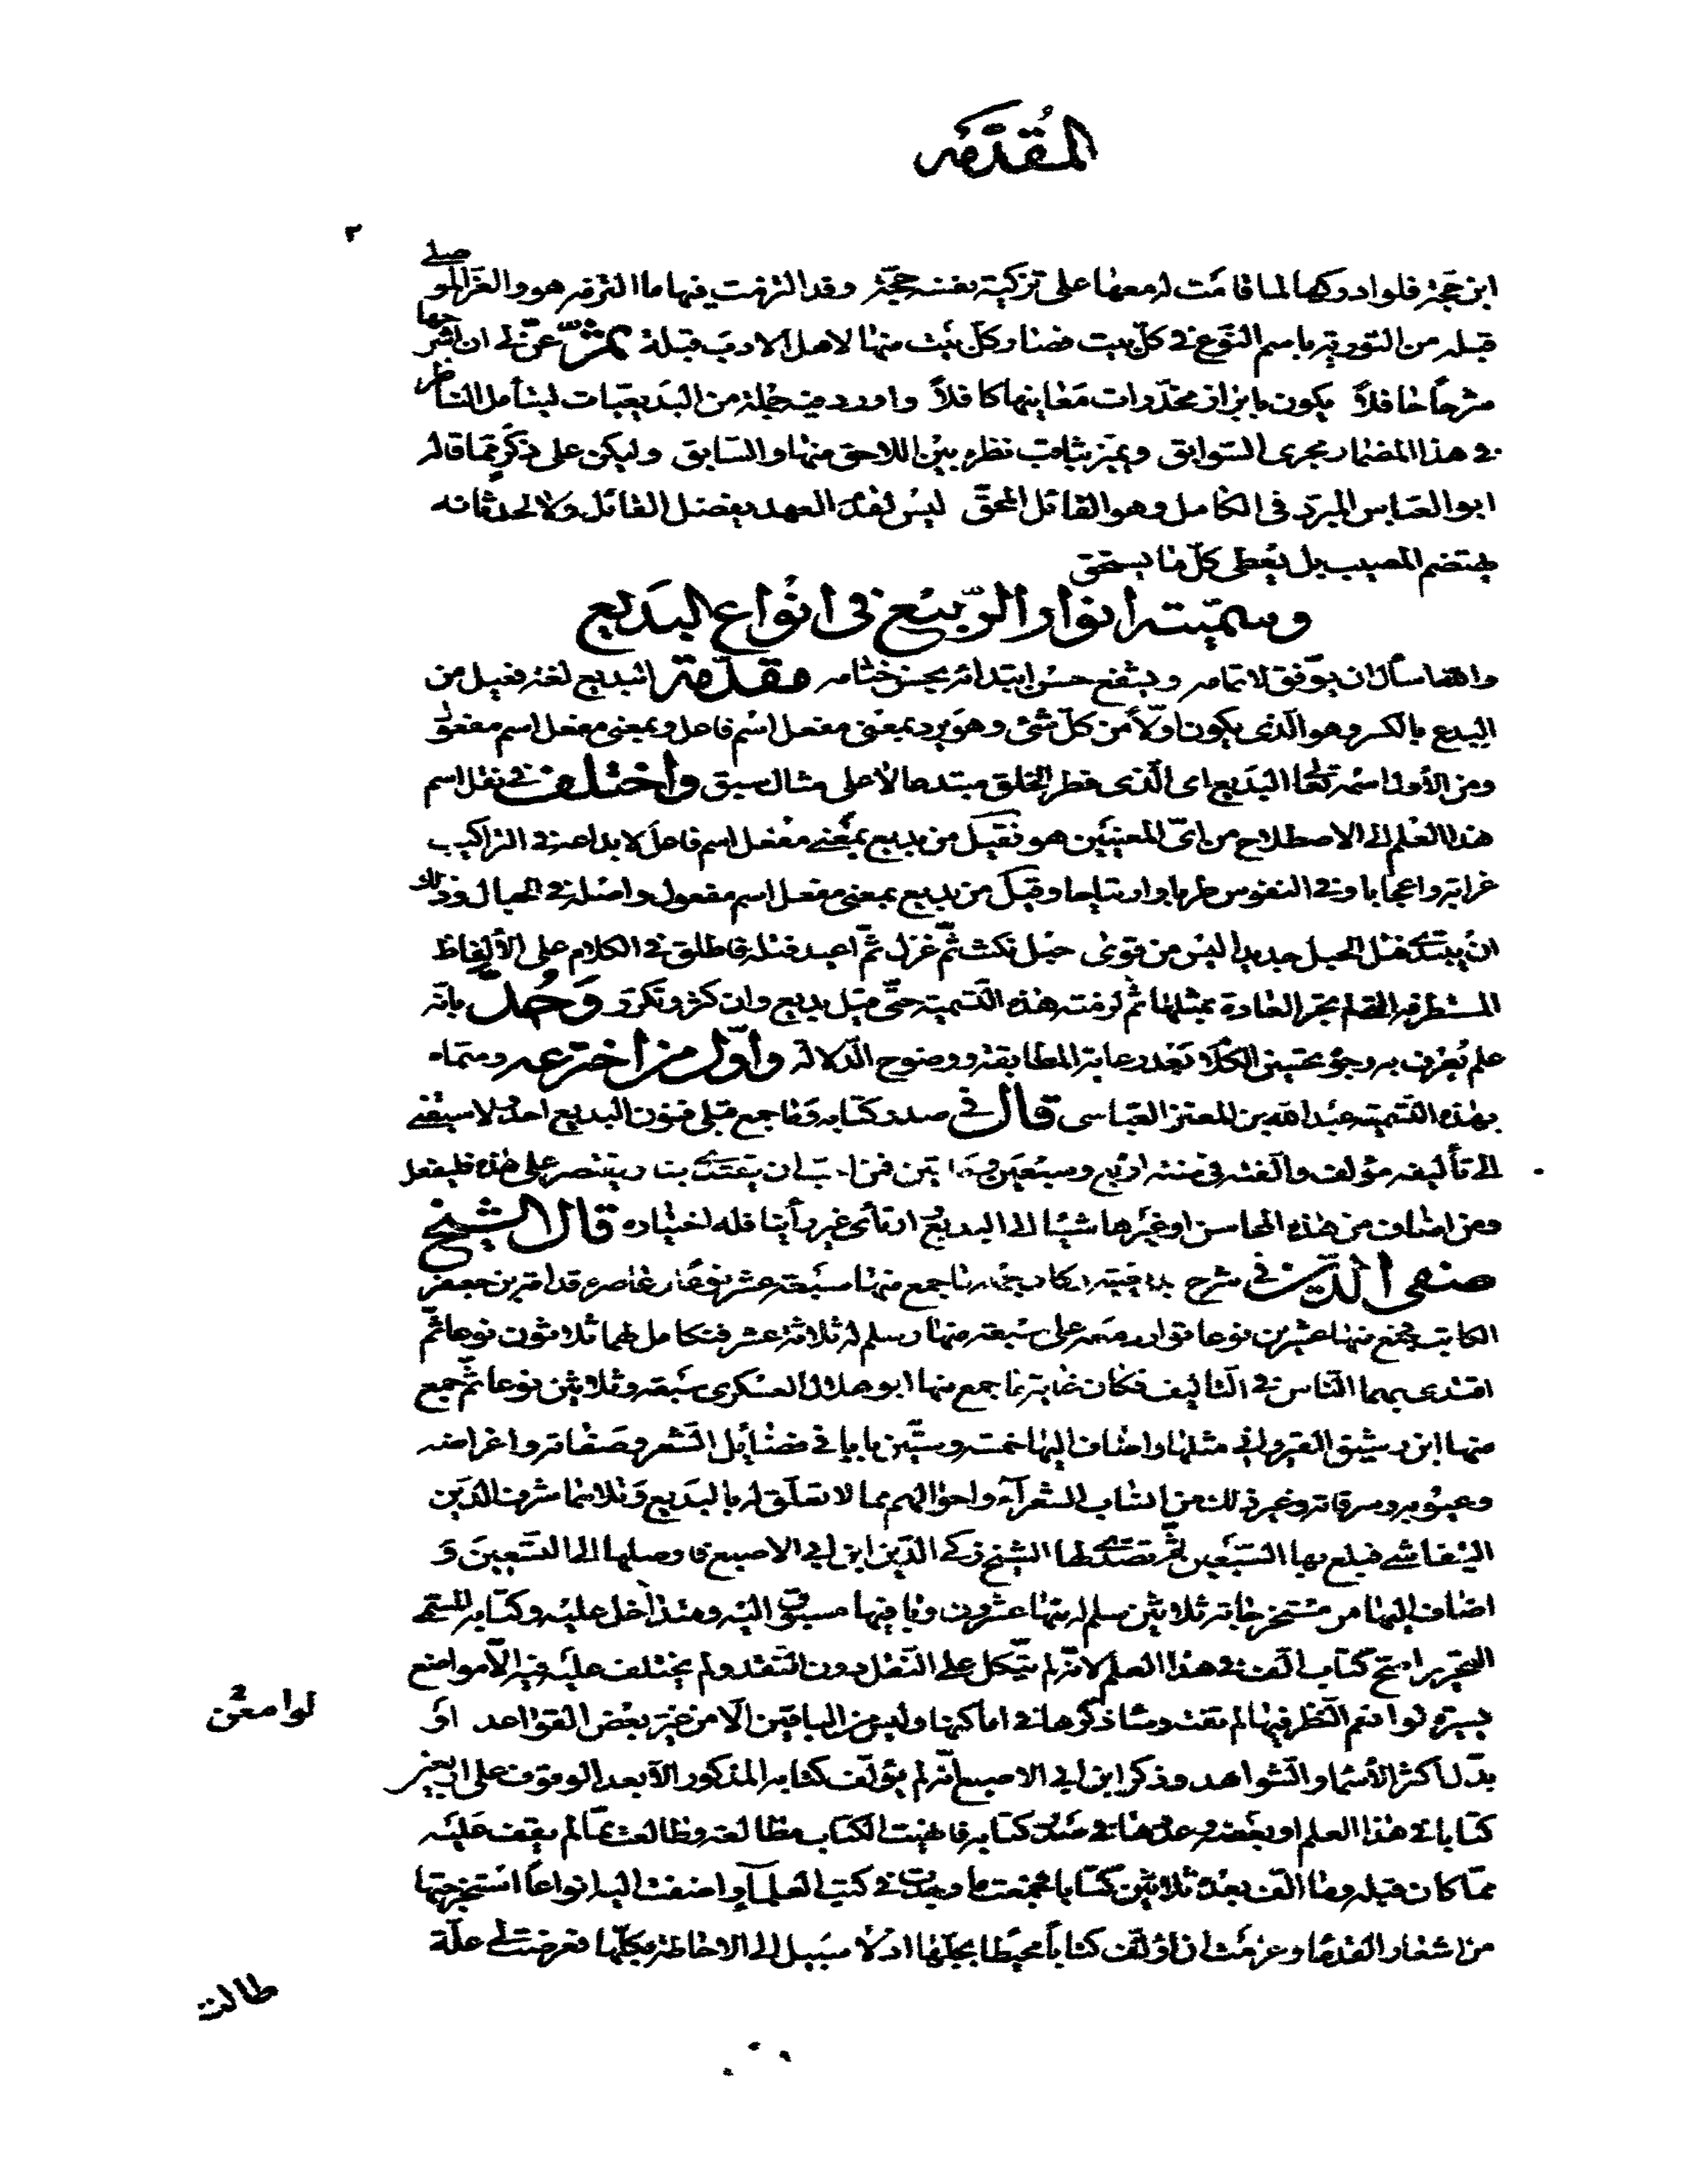 المُقدّمه
٣
ابن حجّة فلو ادركها لما قامت له معها على تزكية نفسه حجّة وقد التزمت فيها ما التزمه هو والعزّ الموصلي
قبله من التورية باسم النوع في كلّ بيت فصار كلّ بيت منها لاهل الادب قبلة ثمّ عنّ لي ان اشرحها
شرحاً حافلاً يكون بابراز مخدّرات معانيها كافلاً واورد فيه جملة من البديعيّات ليتأمل الناظر
في هذا المضمار مجرى السوابق ويميّز بثاقب نظره بين اللاحق منها والسّابق وليكن على ذكرٍ ممّا قاله
ابو العبّاس المبرّد في الكامل وهو القائل المحقّ ليس لقدم العهد يفضل القائل ولا لحدثانه
يهتضم المصيب بل يعطى كلّ ما يستحق
وسمّيته انوار الرّبيع في انواع البديع
والله اسأل ان يوفق لاتمامه ويشفع حسن ابتدائه بحسن ختامه مقدّمة البديع لغة فعيل من
البدع بالكسر وهو الّذي يكون اولاً من كلّ شئ وهو يرد بمعنى مفعل اسم فاعل وبمعنى مفعل اسم مفعول
ومن الأول اسمه تعالى البديع اى الّذى فطر الخلق مبتدعا لا على مثال سبق واختلف في نقل اسم
هذا العلم الى الاصطلاح من اىّ المعنيين هو فقيل من بديع بمعنى مفعل اسم فاعل لابداعه في التراكيب
غرابة واعجابا وفي النفوس طربا وارتياحا وقيل من بديع بمعنى مفعل اسم مفعول واصله في الحبال وذلك
ان يبتدى فتل الحبل جديدا ليس من قوى حبل نكث ثمّ غزل ثمّ اعيد فتله فاطلق في الكلام على الألفاظ
المستطرفة التى لم تجر العادة بمثلها ثم لزمته هذه التسمية حتّى قيل بديع وان كثر وتكرّر وَحُدّ بانّه
علم يُعرف به وجوه تحسين الكلام بعد رعاية المطابقة ووضوح الدّلالة واوّل من اخترعه وسمّاه
بهذه التسمية عبد الله بن المعتز العبّاسى قال في صدر كتابه وما جمع قبلى فنون البديع احد ولا سبقنى
الى تأليفه مؤلف والّفته في سنة اربع وسبعين ومأتين فمن احبّ ان يقتدى بنا ويقتصر على هذه فليفعل
ومن اضاف من هذه المحاسن او غيرها شيئا الى البديع وارتأى غير رأينا فله اختياره قال الشيخ
صفى الدّين في شرح بديعيته وكان جملة ما جمع منها سبعة عشر نوعا وعاصره قدامة بن جعفر
الكاتب فجمع منها عشرين نوعا توارد معه على سبعة منها وسلم له ثلاثة عشر فتكامل لهما ثلاثون نوعا ثمّ
اقتدى بهما النّاس في التّأليف فكان غاية ما جمع منها ابو هلال العسكرى سبعة وثلاثين نوعا ثمّ جمع
منها ابن رشيق القيرواني مثلها واضاف اليها خمسة وستّين بابا في فضائل الشعر وصفاته واغراضه
وعيوبه وسرقاته وغير ذلك من انساب الشعراء واحوالهم ممّا لا تعلّق له بالبديع وتلاهما شرف الدّين
التيفاشي فبلغ بها السّبعين ثمّ تصدّى لها الشيخ زكي الدّين ابن ابي الاصبع فاوصلها الى التّسعين و
اضاف اليها من مستخرجاته ثلاثين سلم له منها عشرون وباقيها مسبوق اليه ومتداخل عليه وكتابه المسمّى
التحرير اصحّ كتاب الّف في هذا العلم لانّه لم يتّكل على النّقل دون النّقد ولم يختلف عليه فيه الّا مواضع
يسيرة لو انعم النّظر فيها لم تفته وسأذكرها في اماكنها وليس من الباقين الّا من غيّر بعض القواعد او
بدّل اكثر الأسماء والشّواهد وذكر ابن ابي الاصبع انّه لم يؤلّف كتابه المذكور الّا بعد الوقوف على اربعين
كتابا في هذا العلم او بعضه وعدّها في صدر كتابه فانهيت الكتاب مطالعة وطالعت ممّا لم يقف عليه
ممّا كان قبله وما الّف بعده ثلاثين كتابا فجمعت ما وجدت في كتب العلماء واضفت اليه انواعاً استخرجتها
من اشعار القدماء وعزمت ان اؤلّف كتاباً محيطا بجلّها اذ لا سبيل الى الاحاطة بكلّها فعرضت لي علّة
لو امعن
طالت